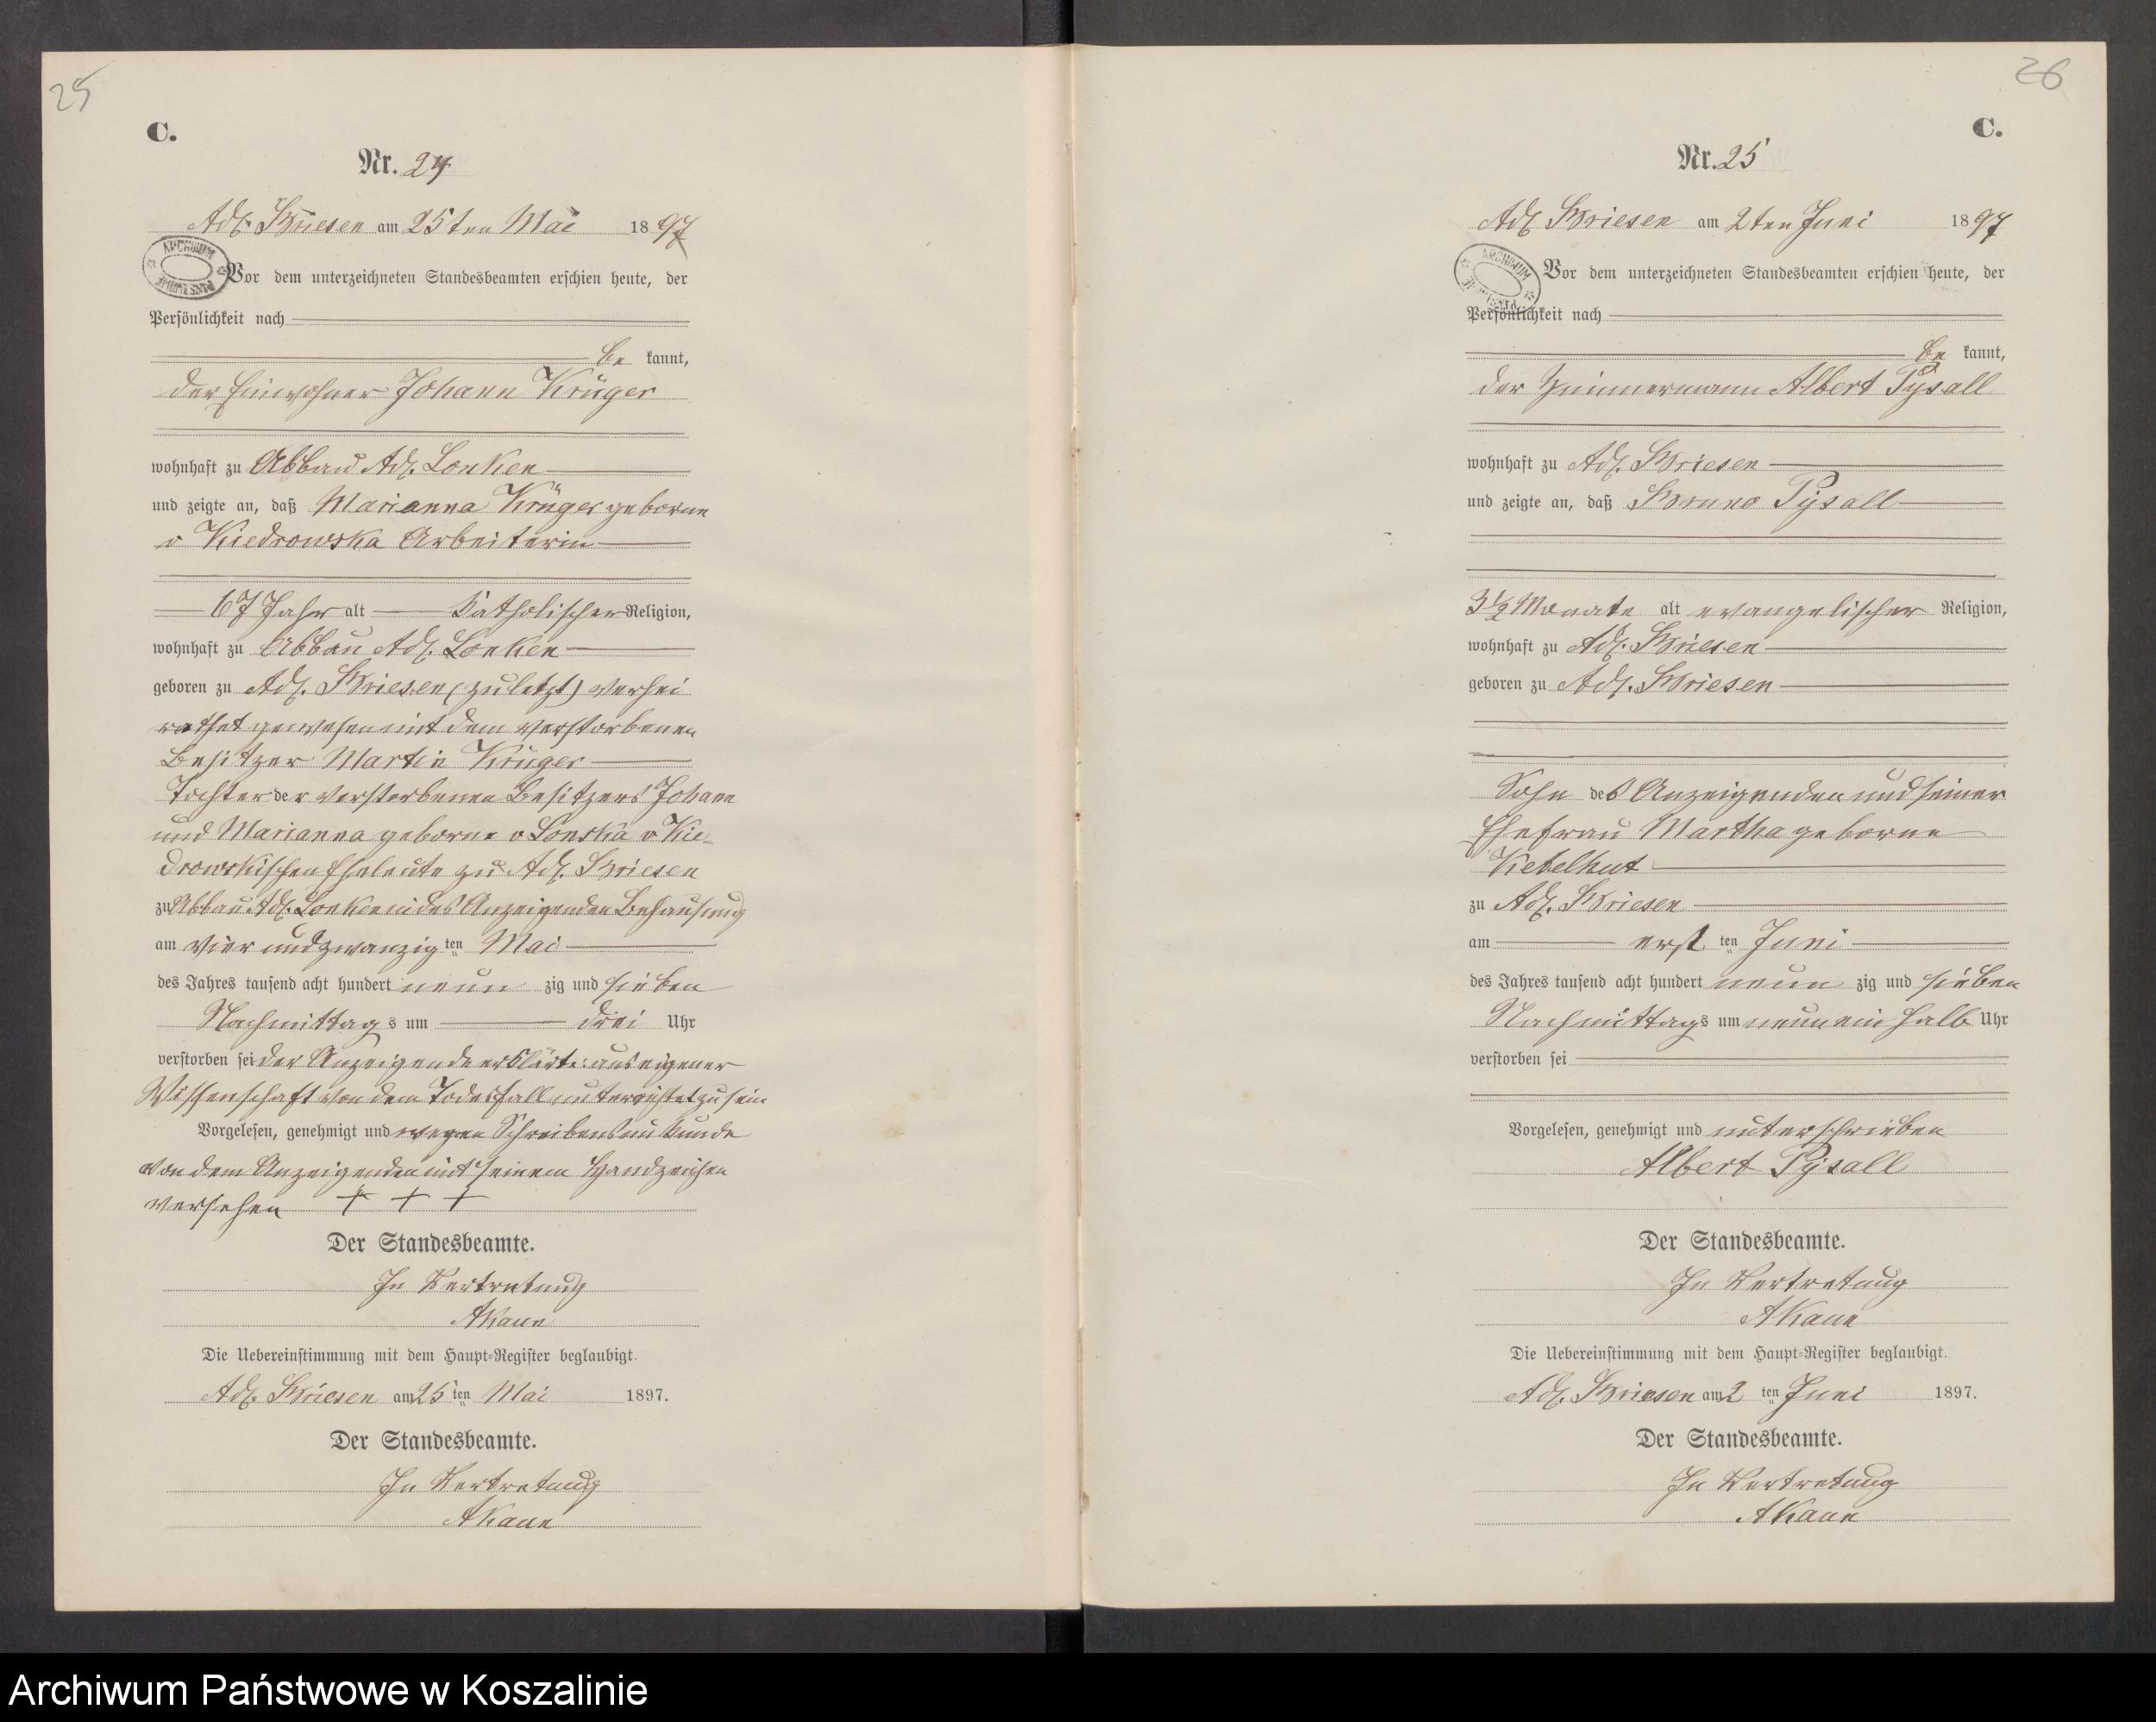 25
C.
Nr. 24
Adl. Briesen am 25ten Mai 1897
ARCHIWUM
Vor dem unterzeichneten Standesbeamten erschien heute, der
Persönlichkeit nach
be kannt,
der Einwohner Johann Krüger
wohnhaft zu Abbau Adl. Lonken
und zeigte an, daß Marianna Krüger geborne
v Kiedrowska Arbeiterin
67 Jahr alt Katholischer Religion,
wohnhaft zu Abbau Adl. Lonken
geboren zu Adl. Briesen (zuletzt) verhei
rathet gewesen mit dem verstorbenen
Besitzer Martin Krüger
Tochter der verstorbenen Besitzers Johann
und Marianna geborne v Lonska v Kie-
drowskischen Eheleute zu Adl. Briesen
zu Abbau Adl. Lonken in des Anzeigenden Behausung
am vier und zwanzig ten Mai
des Jahres tausend acht hundert neun zig und sieben
Nachmittags um drei Uhr
verstorben sei der Anzeigende erklärte: aus eigener
Wissenschaft von dem Todesfall unterrichtet zu sein
Vorgelesen, genehmigt und wegen Schreibensunkunde
von dem Anzeigenden mit seinem Handzeichen
versehen + + +
Der Standesbeamte.
In Vertretung
AKaun
Die Uebereinstimmung mit dem Haupt-Register beglaubigt.
Adl. Briesen am 25 ten Mai 1897.
Der Standesbeamte.
In Vertretung
AKaun
26
C.
Nr. 25
Adl Briesen am 2ten Juni 1897
ARCHIWUM
Vor dem unterzeichneten Standesbeamten erschien heute, der
Persönlichkeit nach
be kannt,
der Zimmermann Albert Pysall
wohnhaft zu Adl. Briesen
und zeigte an, daß Bruno Pysall
3 1/2 Monate alt evangelischer Religion,
wohnhaft zu Adl. Briesen
geboren zu Adl. Briesen
Sohn des Anzeigenden und seiner
Ehefrau Martha geborne
Kebelhut
zu Adl. Briesen
am erst ten Juni
des Jahres tausend acht hundert neun zig und sieben
Nachmittags um neun ein halb Uhr
verstorben sei
Vorgelesen, genehmigt und unterschrieben
Albert Pysall
Der Standesbeamte.
In Vertretung
AKaun
Die Uebereinstimmung mit dem Haupt-Register beglaubigt.
Adl. Briesen am 2 ten Juni 1897.
Der Standesbeamte.
In Vertretung
AKaun
Archiwum Państwowe w Koszalinie